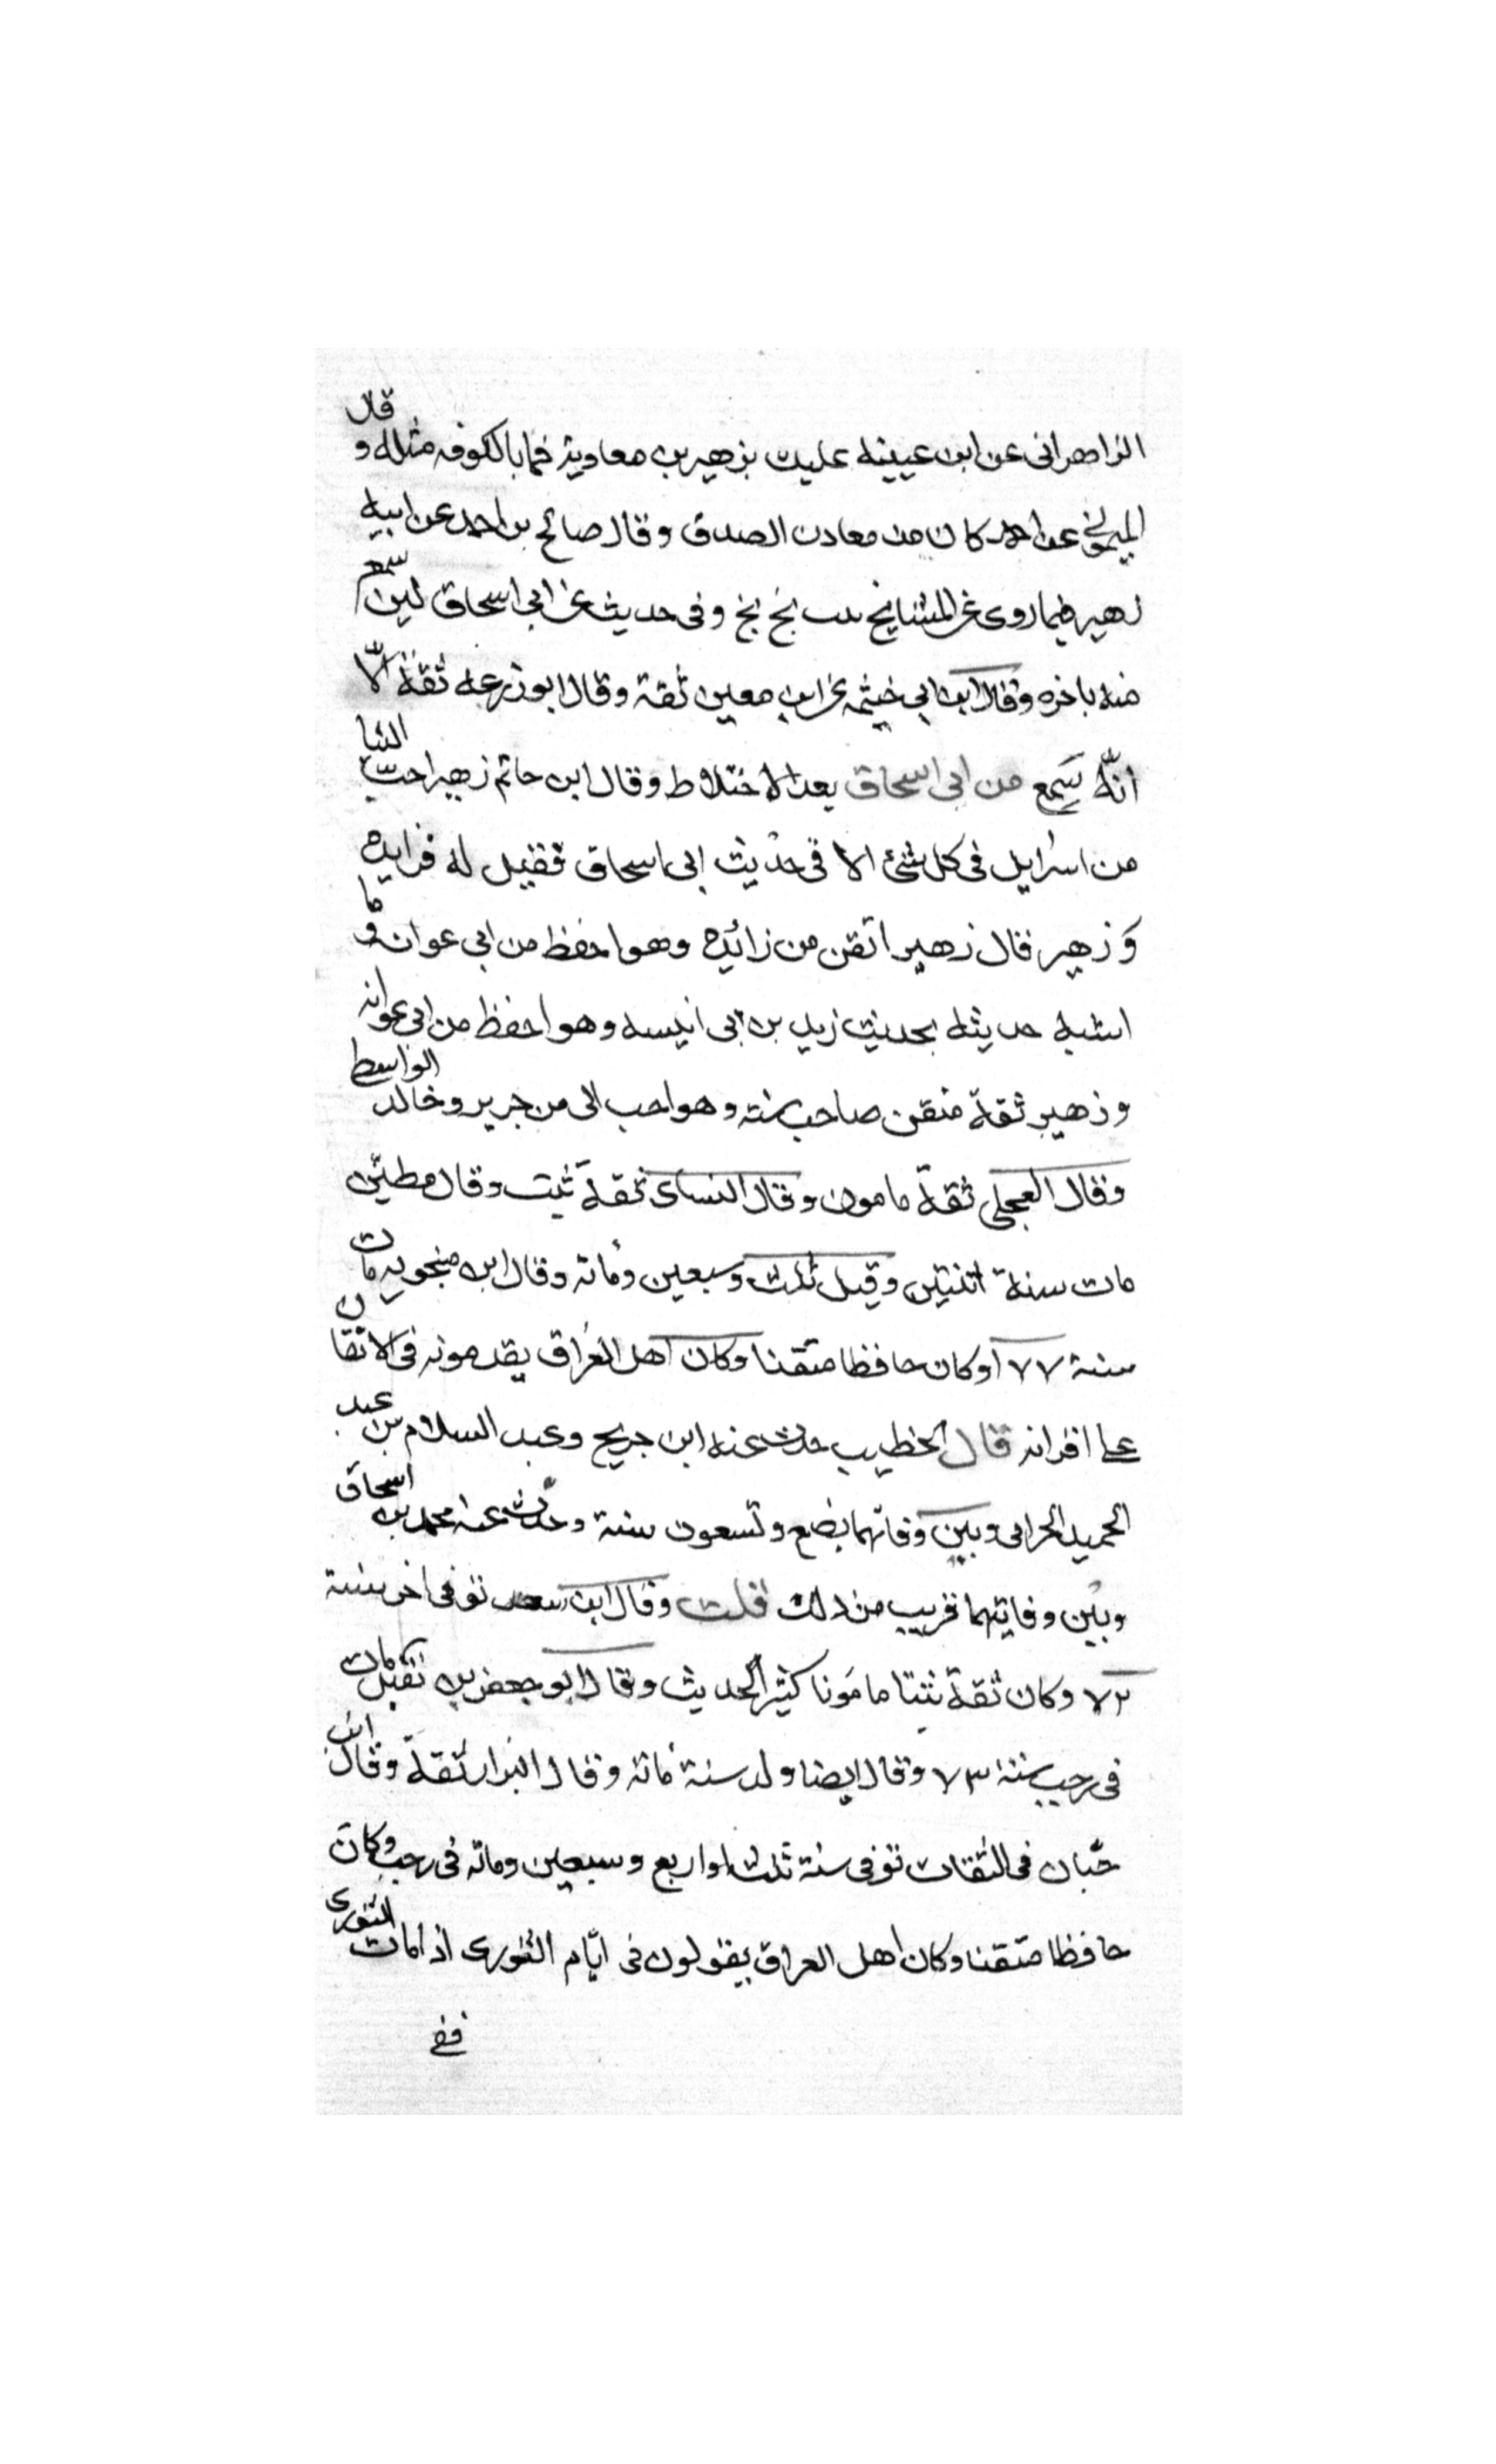 الزاهرانى عن ابن عيينه عليك بزهير بن معاوية فما بالكوفه مثله وقال
الميمونى عن احمد كان من معادن الصدق وقال صالح بن احمد عن ابيه
زهير فيما روى عن المشايخ ثبت بخ بخ وفى حديثه عن ابى اسحاق لين سمع
منه باخره وقال ابن ابى خيثمه عن ابن معين ثقة وقال ابو زرعه ثقة الا
انّه سَمِع من ابى اسحاق بعد الاختلاط وقال ابن حاتم زهير احبّ الينا
من اسرايل فى كل شئ الا فى حديث ابى اسحاق فقيل له فزايده
وَ زهير قال زهير اتقن من زائده وهو احفظ من ابى عوان وما
اشبه حديثه بحديث زيد بن ابى انيسه وهو احفظ من ابى عوانه
وزهير ثقة متقن صاحب سنته وهو احب الى من جرير وخالد الواسطى
وقال العجلى ثقة مامون وقال النساى ثقة ثبت وقال مطيّن
مات سنة اثنتين وقيل ثلث وسبعين ومأته وقال ابن منجويه مات
سنة ٧٧ ا وكان حافظا متقنا وكان اهل العراق يقدمونه فى الاتقان
على اقرانه قال الخطيب حدث عنه ابن جريح وعبد السلام بن عبد
الحميد الحرانى وبين وفاتهما بضع وتسعون سنة وحدّث عنه محمد بن اسحاق
وبين وفايتهما قريب من ذلك قلت وقال ابن سعد توفى اخر سنة
٧٢ وكان ثقة ثبتا مامونا كثير الحديث وقال ابو جعفر بن نفيل مات
فى رجب سنة ٧٣ وقال ايضا ولد سنة مأته وقال البزار ثقة وقال ابن
حّبان فى الثقات توفى سنة ثلث او اربع وسبعين وماته فى رجب وكان
حافظا متقنا وكان اهل العراق يقولون فى ايّام الثورى اذا مات الثورى
ففى